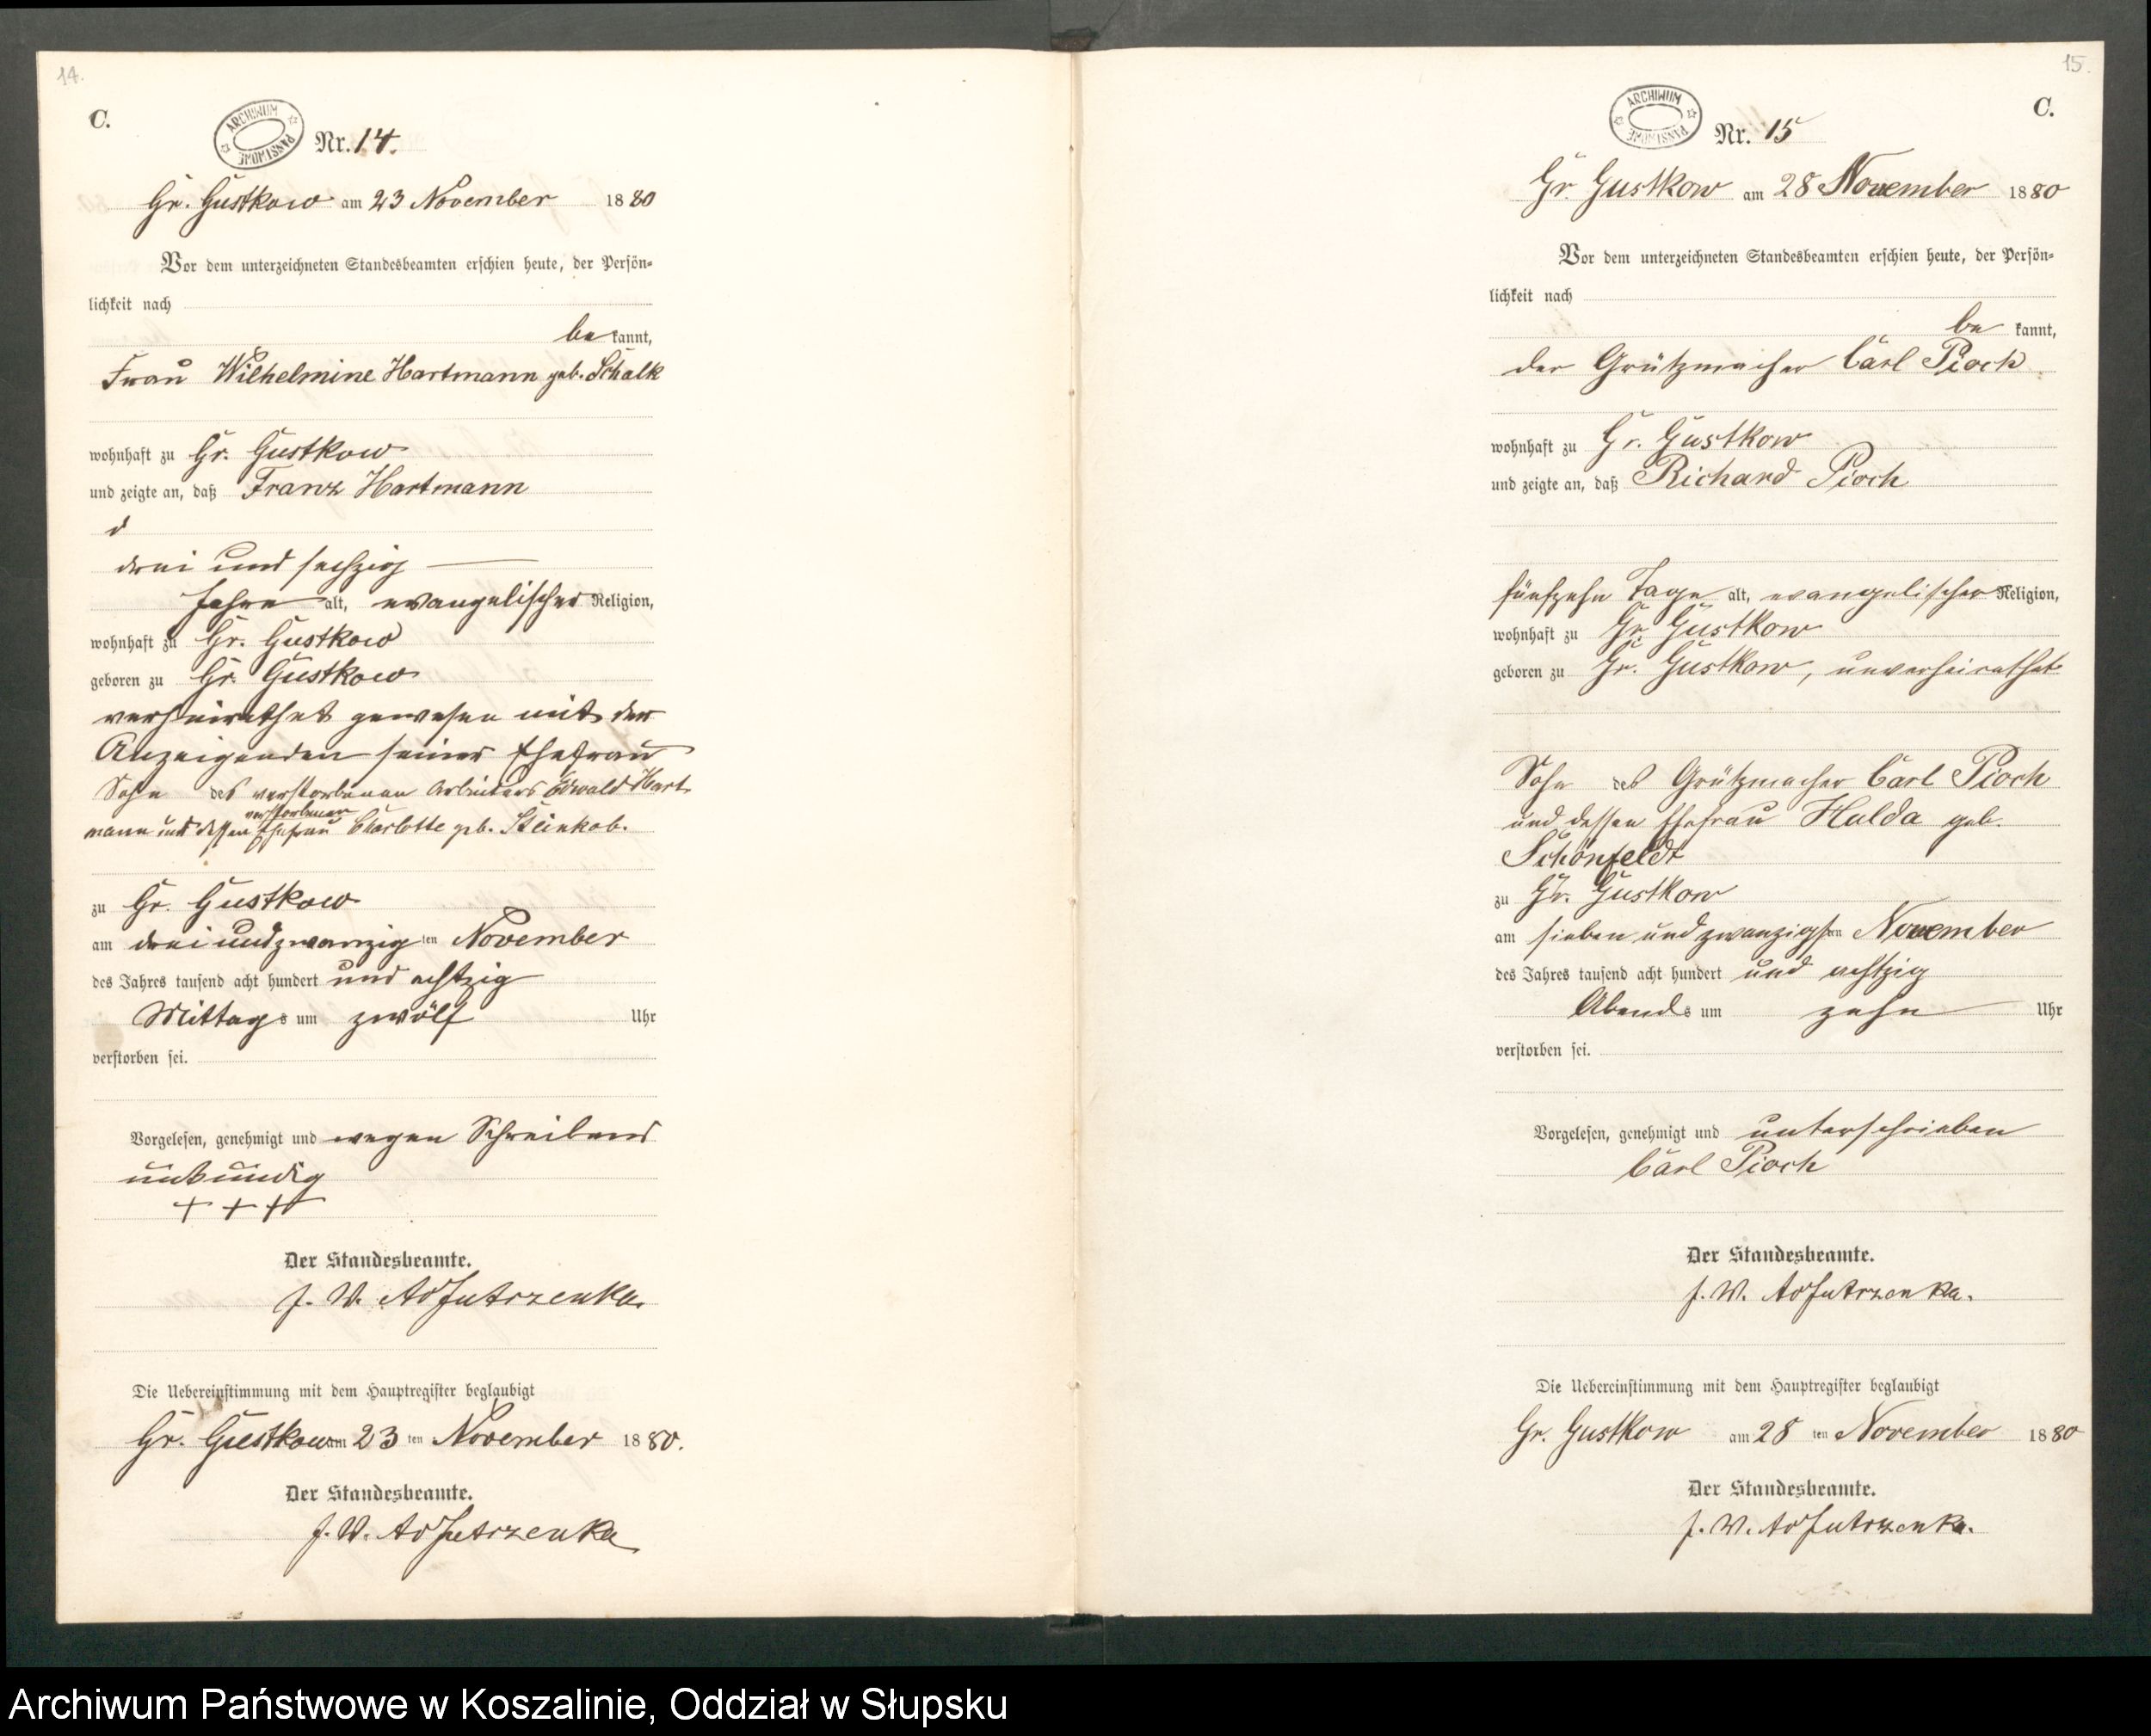 14.
C.
ARCHIWUM PAŃSTWOWE
Nr. 14.
Gr. Gustkow am 23 November 1880
Vor dem unterzeichneten Standesbeamten erschien heute, der Persön-
lichkeit nach
be kannt,
Frau Wilhelmine Hartmann geb. Schalk
wohnhaft zu Gr. Gustkow
und zeigte an, daß Franz Hartmann
d
drei und sechzig
Jahre alt, evangelischer Religion,
wohnhaft zu Gr. Gustkow
geboren zu Gr. Gustkow
verheirathet gewesen mit der
Anzeigenden seiner Ehefrau
Sohn des verstorbenen Arbeiters Ewald Hart
verstorbenen
mann und dessen Ehefrau Charlotte geb. Steinkob.
zu Gr. Gustkow
am drei und zwanzig ten November
des Jahres tausend acht hundert und achtzig
Mittags um zwölf Uhr
verstorben sei.
Vorgelesen, genehmigt und wegen Schreibens
unkundig
+ + +
Der Standesbeamte.
J. W. Ad Jutrzenka.
Die Uebereinstimmung mit dem Hauptregister beglaubigt
Gr. Gustkow am 23 ten November 1880.
Der Standesbeamte.
J. W. Ad Jutrzenka
15.
C.
ARCHIWUM PAŃSTWOWE
Nr. 15
Gr. Gustkow am 28 November 1880
Vor dem unterzeichneten Standesbeamten erschien heute, der Persön-
lichkeit nach
be kannt,
der Grützmacher Carl Pioch
wohnhaft zu Gr. Gustkow
und zeigte an, daß Richard Pioch
fünfzehn Tage alt, evangelischer Religion,
wohnhaft zu Gr. Gustkow
geboren zu Gr. Gustkow, unverheirathet
Sohn des Grützmacher Carl Pioch
und dessen Ehefrau Hulda geb.
Schönfeldt
zu Gr. Gustkow
am sieben und zwanzigsten November
des Jahres tausend acht hundert und achtzig
Abends um zehn Uhr
verstorben sei.
Vorgelesen, genehmigt und unterschrieben
Carl Pioch
Der Standesbeamte.
J. W. Ad Jutrzenka.
Die Uebereinstimmung mit dem Hauptregister beglaubigt
Gr. Gustkow am 28 ten November 1880
Der Standesbeamte.
J. W. Ad Jutrzenka.
Archiwum Państwowe w Koszalinie, Oddział w Słupsku